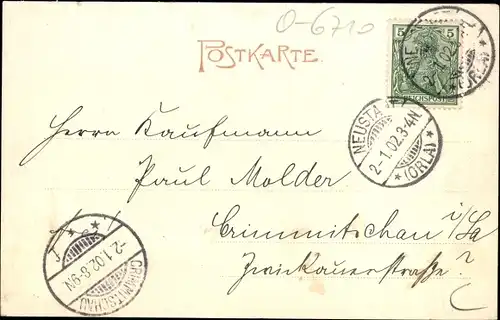 O-6710
POSTKARTE
5
REICHSPOST
NEUSTADT
2-1.02.3-4N
* (ORLA) *
Herrn Kaufmann
Paul Molder
Crimmitschau i/Sa
Zwickauerstraße?
-2.1.02.8-9N
CRIMMITSCHAU